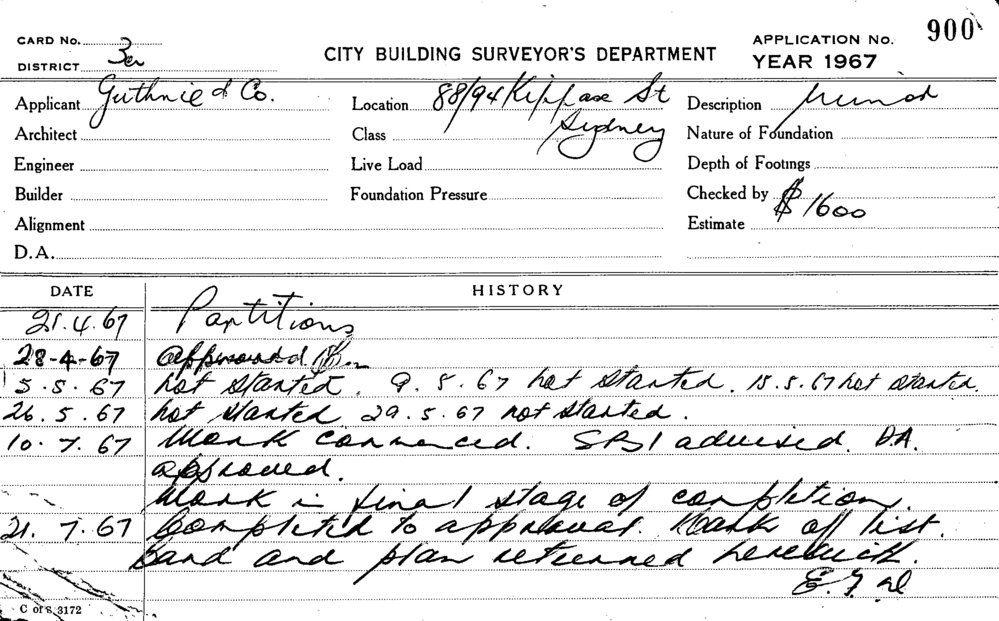 CARD No. 3
DISTRICT
CITY BUILDING SURVEYOR'S DEPARTMENT
APPLICATION No. 900
YEAR 1967
Applicant Guthrie & Co.
Location 88/94 Kippax St
Sydney
Description
Architect
Class
Nature of Foundation
Engineer
Live Load
Depth of Footings
Builder
Foundation Pressure
Checked by
Alignment
Estimate $1600
D.A.
DATE HISTORY
21.4.67 Partitions
28-4-67 approved
5.5.67 not started. 9.5.67 not started. 15.5.67 not started.
26.5.67 not started 29.5.67 not started.
10.7.67 Work commenced. SBI advised. DA.
approved.
Work in final stage of completion.
21.7.67 Completed to approval. Mark off list.
Card and plan returned herewith.
C of S 3172